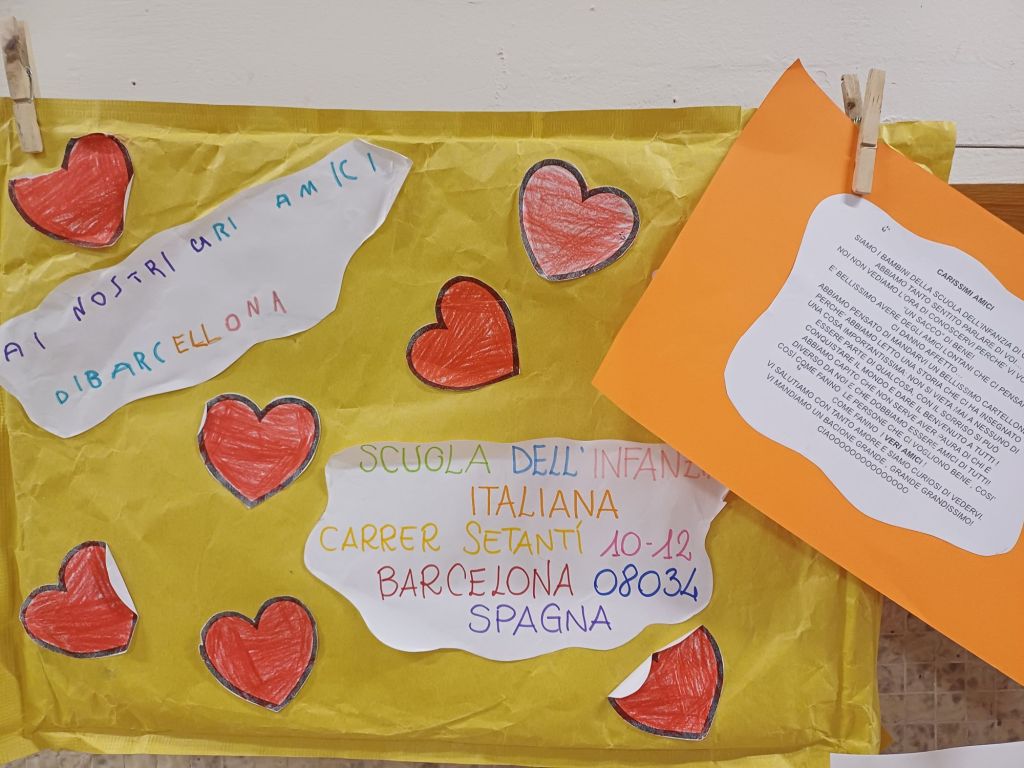 AI NOSTRI CARI AMICI
DI BARCELLONA
SCUOLA DELL'INFANZI
ITALIANA
CARRER SETANTÍ 10-12
BARCELONA 08034
SPAGNA
CARISSIMI AMICI
SIAMO I BAMBINI DELLA SCUOLA DELL'INFANZIA DI
ABBIAMO TANTO SENTITO PARLARE DI VOI
NOI NON VEDIAMO L'ORA DI CONOSCERVI PERCHE' VI
UN SACCO DI BENE!
E BELLISSIMO AVERE DEGLI AMICI LONTINI CHE CI PENSA
CI DANNO AFFETTO...
ABBIAMO PENSATO DI MANDARVI UN BELLISSIMO CARTELLON
PERCHE' ABBIAMO LETTO UNA STORIA CHE CI HA INSEGNATO
UNA COSA IMPORTANTISSIMA: NON SI VIETA MAI A NESSUNO DI
ESSERE PARTE DI QUALCOSA, CON IL SORRISO SI PUÒ
CONQUISTARE IL MONDO E DARE IL BENVENUTO A TUTTI !
ABBIAMO CAPITO CHE NON SERVE AVER PAURA DI CHI È
DIVERSO DA NOI E CHE DOBBIAMO ESSERE AMICI DI TUTTI!
COSÌ COME FANNO LE PERSONE CHE CI VOGLIONO BENE, COSI'
COME FANNO I VERI AMICI !
VI SALUTIAMO CON TANTO AMORE E SIAMO CURIOSI DI VEDERVI.
VI MANDIAMO UN BACIONE GRANDE , GRANDE GRANDISSIMO!